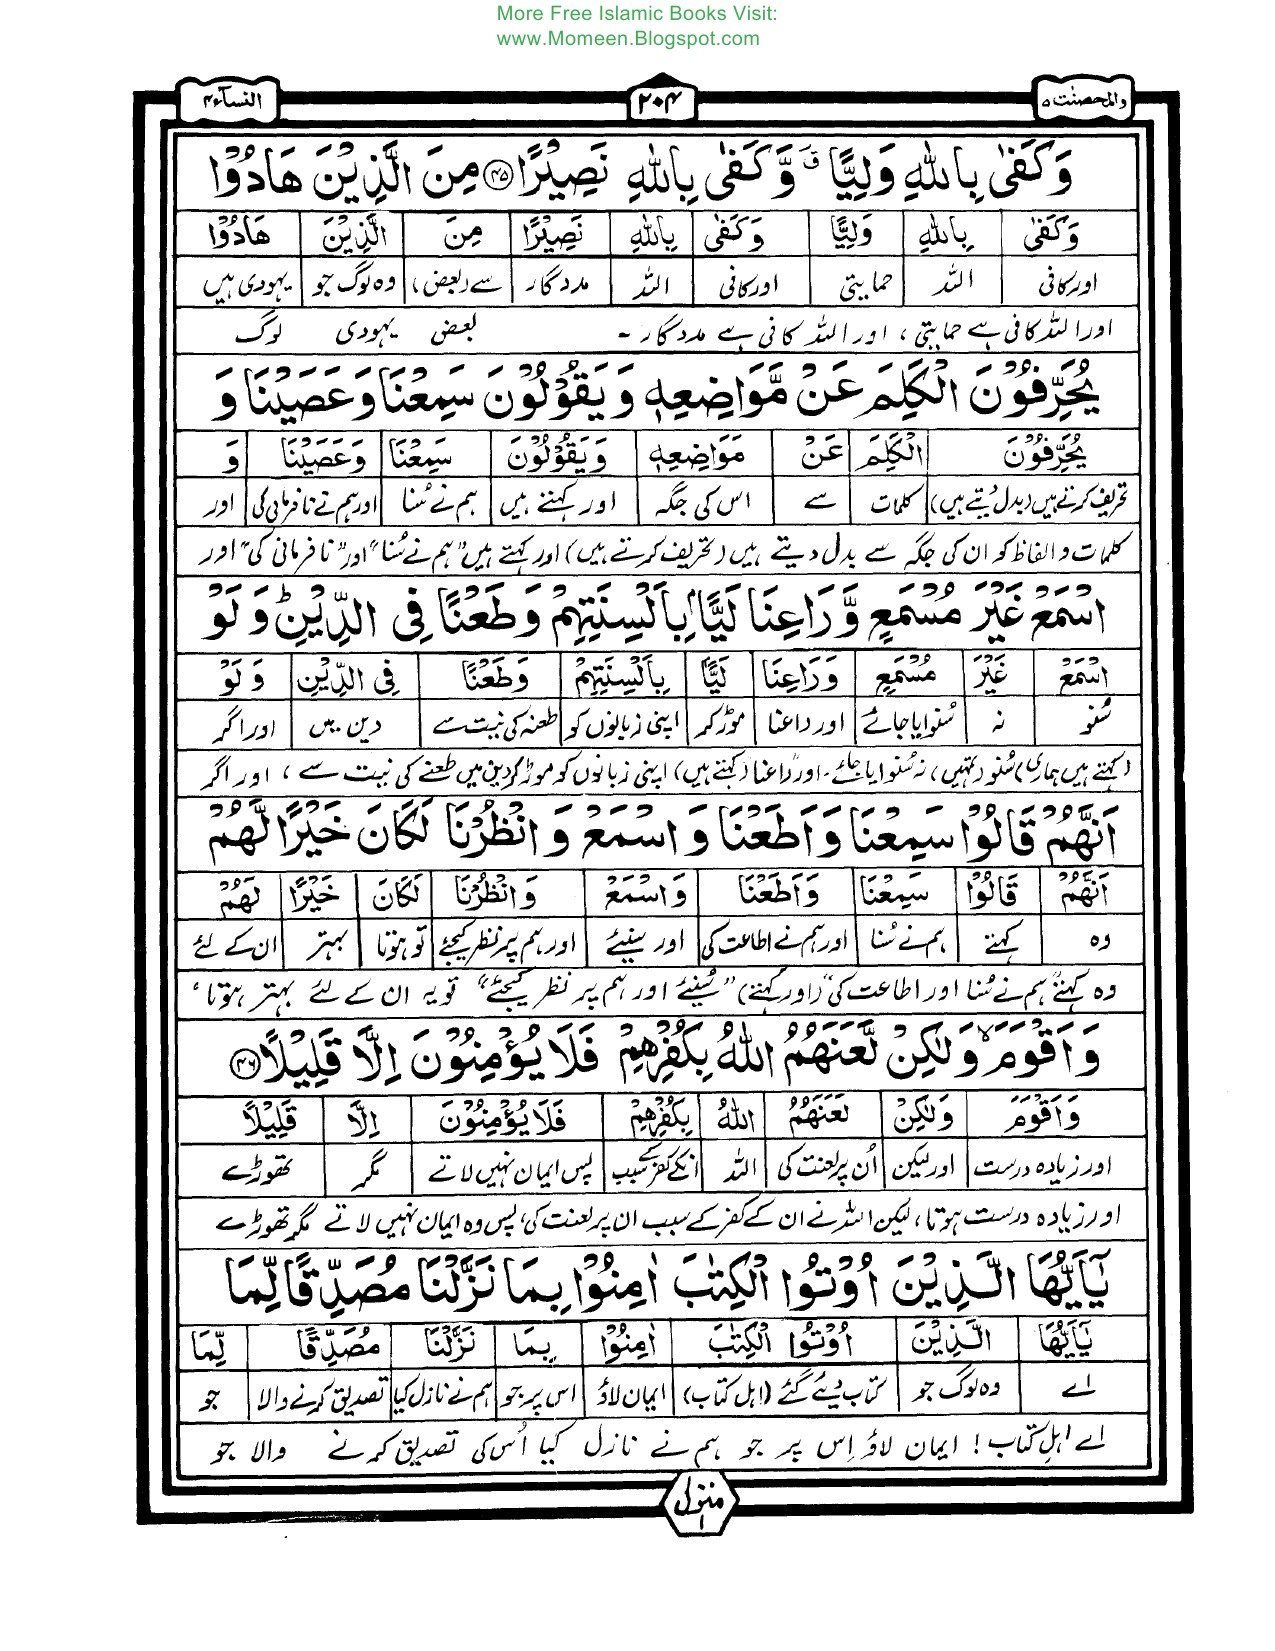 More Free Islamic Books Visit:
www.Momeen.Blogspot.com
والمحصنٰت ۵ ۲۰۴ النساء ۴
وَكَفٰى بِاللّٰهِ وَلِيًّا ۙ وَّكَفٰى بِاللّٰهِ نَصِيْرًا ﴿۴۵﴾ مِنَ الَّذِيْنَ هَادُوْا
وَكَفٰى بِاللّٰهِ وَلِيًّا وَكَفٰى بِاللّٰهِ نَصِيْرًا مِنَ الَّذِيْنَ هَادُوْا
اور کافی اللہ حمایتی اور کافی اللہ مددگار سے (بعض) وہ لوگ جو یہودی ہیں
اور اللہ کافی ہے حمایتی، اور اللہ کافی ہے مددگار ۔ بعض یہودی لوگ
يُحَرِّفُوْنَ الْكَلِمَ عَنْ مَّوَاضِعِهٖ وَيَقُوْلُوْنَ سَمِعْنَا وَعَصَيْنَا وَ
يُحَرِّفُوْنَ الْكَلِمَ عَنْ مَوَاضِعِهٖ وَيَقُوْلُوْنَ سَمِعْنَا وَعَصَيْنَا وَ
تحریف کرتے ہیں (بدل دیتے ہیں) کلمات سے اس کی جگہ اور کہتے ہیں ہم نے سُنا اور ہم نے نافرمانی کی اور
کلمات و الفاظ کو ان کی جگہ سے بدل دیتے ہیں (تحریف کرتے ہیں) اور کہتے ہیں "ہم نے سُنا" اور "نافرمانی کی" اور
اسْمَعْ غَيْرَ مُسْمَعٍ وَّرَاعِنَا لَيًّۢا بِاَلْسِنَتِهِمْ وَطَعْنًا فِى الدِّيْنِ ؕ وَلَوْ
اسْمَعْ غَيْرَ مُسْمَعٍ وَرَاعِنَا لَيًّا بِاَلْسِنَتِهِمْ وَطَعْنًا فِى الدِّيْنِ وَلَوْ
سُنو نہ سُنوایا جائے اور راعنا موڑ کر اپنی زبانوں کو طعنہ کی نیت سے دین میں اور اگر
(کہتے ہیں ہماری) سُنو (تمہیں) نہ سُنوایا جائے۔ اور "راعنا" (کہتے ہیں) اپنی زبانوں کو موڑ کر دین میں طعنے کی نیت سے، اور اگر
اَنَّهُمْ قَالُوْا سَمِعْنَا وَاَطَعْنَا وَاسْمَعْ وَانْظُرْنَا لَكَانَ خَيْرًا لَّهُمْ
اَنَّهُمْ قَالُوْا سَمِعْنَا وَاَطَعْنَا وَاسْمَعْ وَانْظُرْنَا لَكَانَ خَيْرًا لَهُمْ
وہ کہتے ہم نے سُنا اور ہم نے اطاعت کی اور سنیئے اور ہم پر نظر کیجئے تو ہوتا بہتر ان کے لئے
وہ کہتے "ہم نے سُنا اور اطاعت کی" (اور کہتے) "سُنیئے اور ہم پر نظر کیجئے" تو یہ ان کے لئے بہتر ہوتا،
وَاَقْوَمَ ۙ وَلٰكِنْ لَّعَنَهُمُ اللّٰهُ بِكُفْرِهِمْ فَلَا يُؤْمِنُوْنَ اِلَّا قَلِيْلًا ﴿۴۶﴾
وَاَقْوَمَ وَلٰكِنْ لَعَنَهُمُ اللّٰهُ بِكُفْرِهِمْ فَلَا يُؤْمِنُوْنَ اِلَّا قَلِيْلًا
اور زیادہ درست اور لیکن اُن پر لعنت کی اللہ انکے کفر کے سبب پس ایمان نہیں لاتے مگر تھوڑے
اور زیادہ درست ہوتا، لیکن اللہ نے ان کے کفر کے سبب ان پر لعنت کی، پس وہ ایمان نہیں لاتے مگر تھوڑے
يٰۤاَيُّهَا الَّذِيْنَ اُوْتُوا الْكِتٰبَ اٰمِنُوْا بِمَا نَزَّلْنَا مُصَدِّقًا لِّمَا
يٰۤاَيُّهَا الَّذِيْنَ اُوْتُوا الْكِتٰبَ اٰمِنُوْا بِمَا نَزَّلْنَا مُصَدِّقًا لِّمَا
اے وہ لوگ جو کتاب دیئے گئے (اہل کتاب) ایمان لاؤ اس پر جو ہم نے نازل کیا تصدیق کرنے والا جو
اے اہلِ کتاب! ایمان لاؤ اِس پر جو ہم نے نازل کیا اُس کی تصدیق کرنے والا جو
منزل ۱